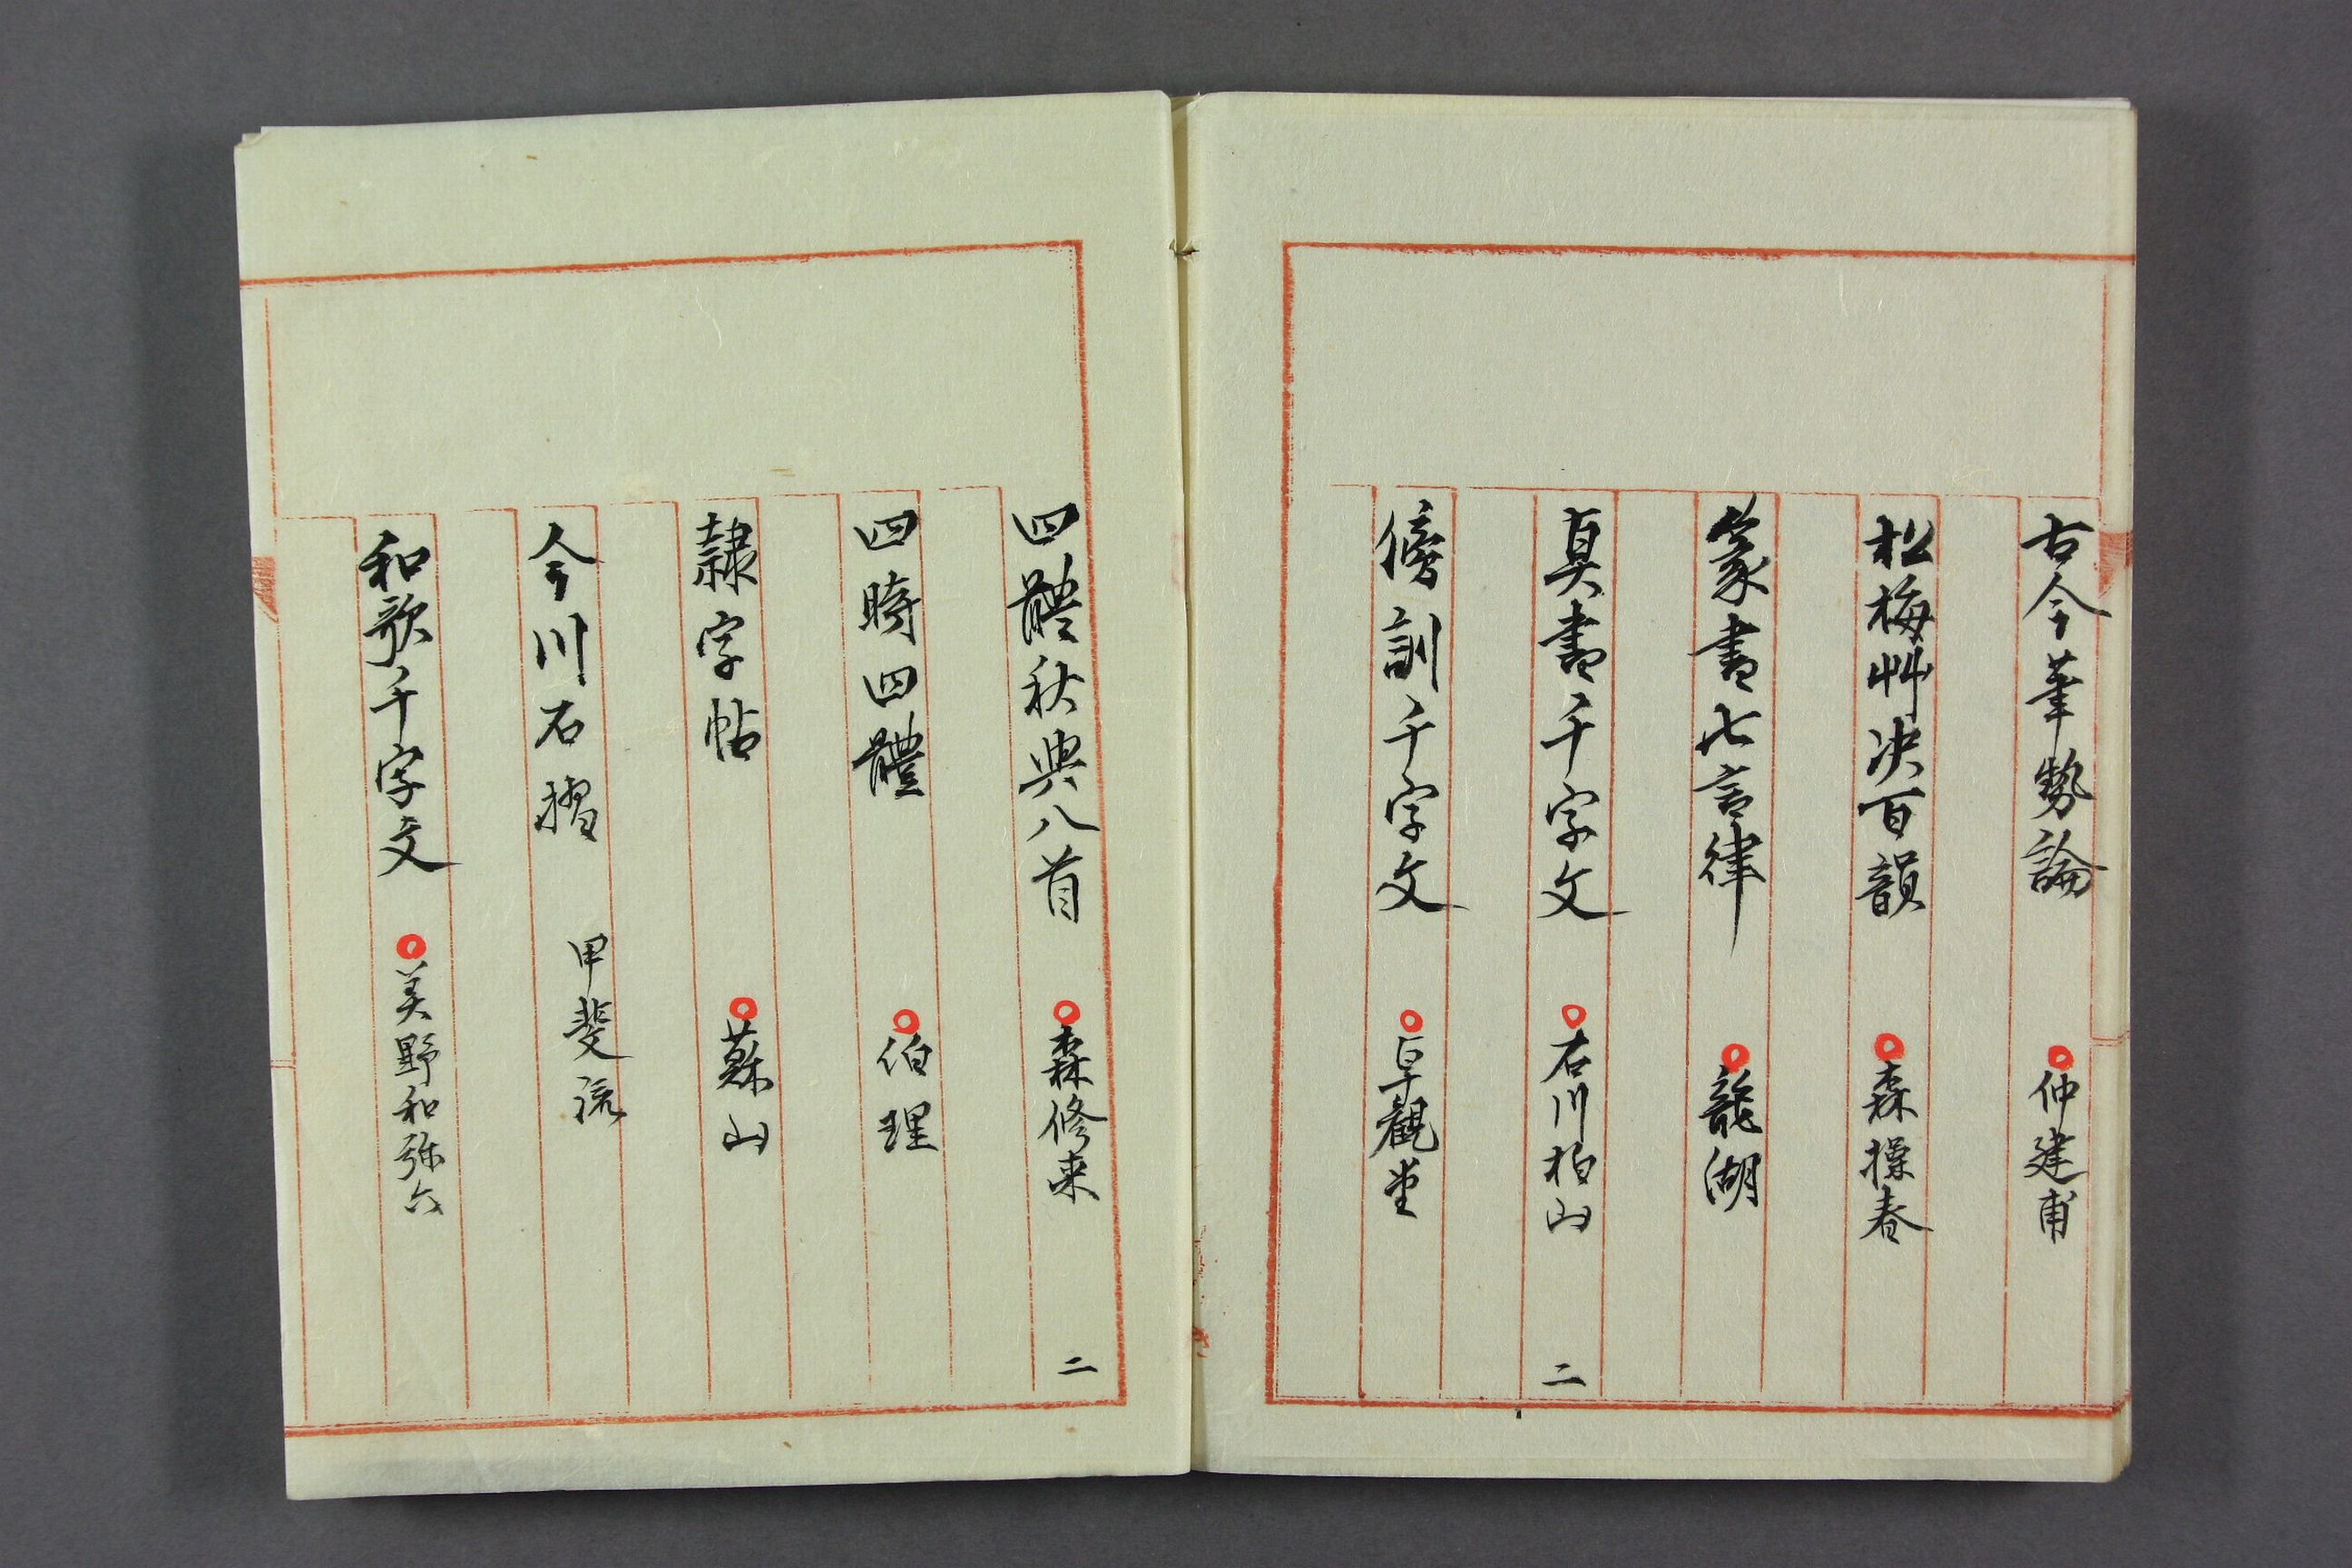 古今筆勢論　仲建甫
松梅艸决百韻　森操春
篆書七言律　龍湖
真書千字文　石川柏山　二
傍訓千字文　卓觀堂
四體秋典八首　森修来　二
四時四體　伯理
隷字帖　蘓山
今川石摺　甲斐流
和歌千字文　美野和弥六